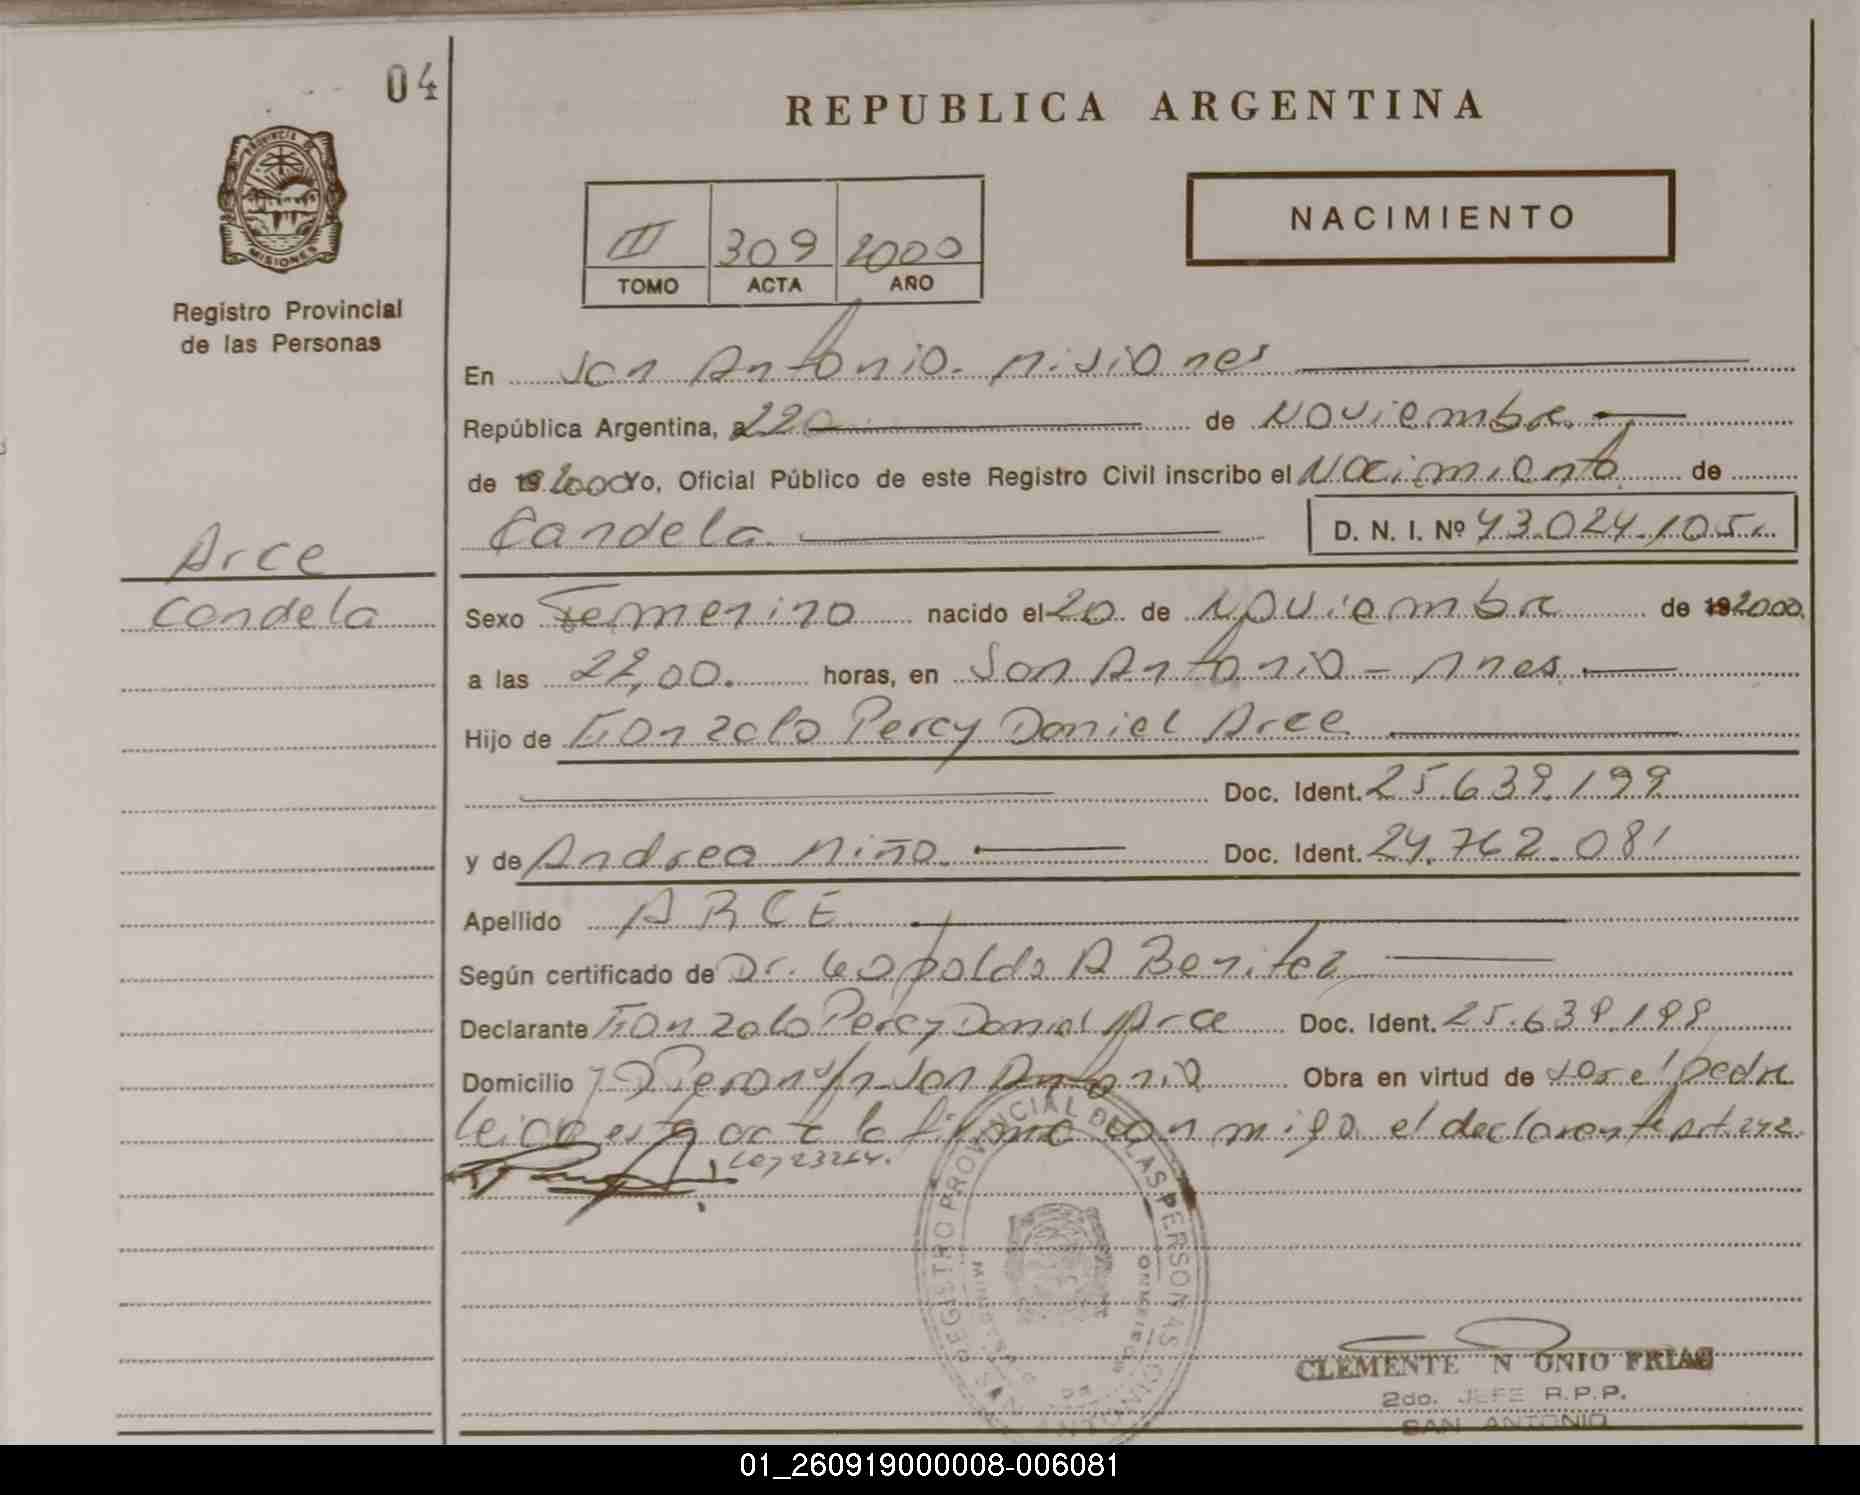 04
REPUBLICA ARGENTINA
PROVINCIA DE
MISIONES
Registro Provincial
de las Personas
NACIMIENTO
II 309 2000
TOMO ACTA AÑO
En San Antonio. Misiones
República Argentina, a 22 de Noviembre.
de 19 2000 Yo, Oficial Público de este Registro Civil inscribo el Nacimiento de
Candela. D. N. I. Nº 43.024.105.
Arce
Candela
Sexo Femenino nacido el 20 de Noviembre de 19 2000.
a las 22,00. horas, en San Antonio - Mnes.
Hijo de Gonzalo Percy Daniel Arce
Doc. Ident. 25.639.199
y de Andrea Miño. Doc. Ident. 24.762.081
Apellido ARCE
Según certificado de Dr. Leopoldo A Benitez
Declarante Gonzalo Percy Daniel Arce Doc. Ident. 25.639.199
Domicilio J D Peron s/n San Antonio Obra en virtud de ser el padre
leida esta acta la firma con migo el declarante Art. 292
Ley 23264.
REGISTRO PROVINCIAL DE LAS PERSONAS
MISIONES
CLEMENTE N ONIO FRIAS
2do. JEFE R.P.P.
SAN ANTONIO
01_260919000008-006081